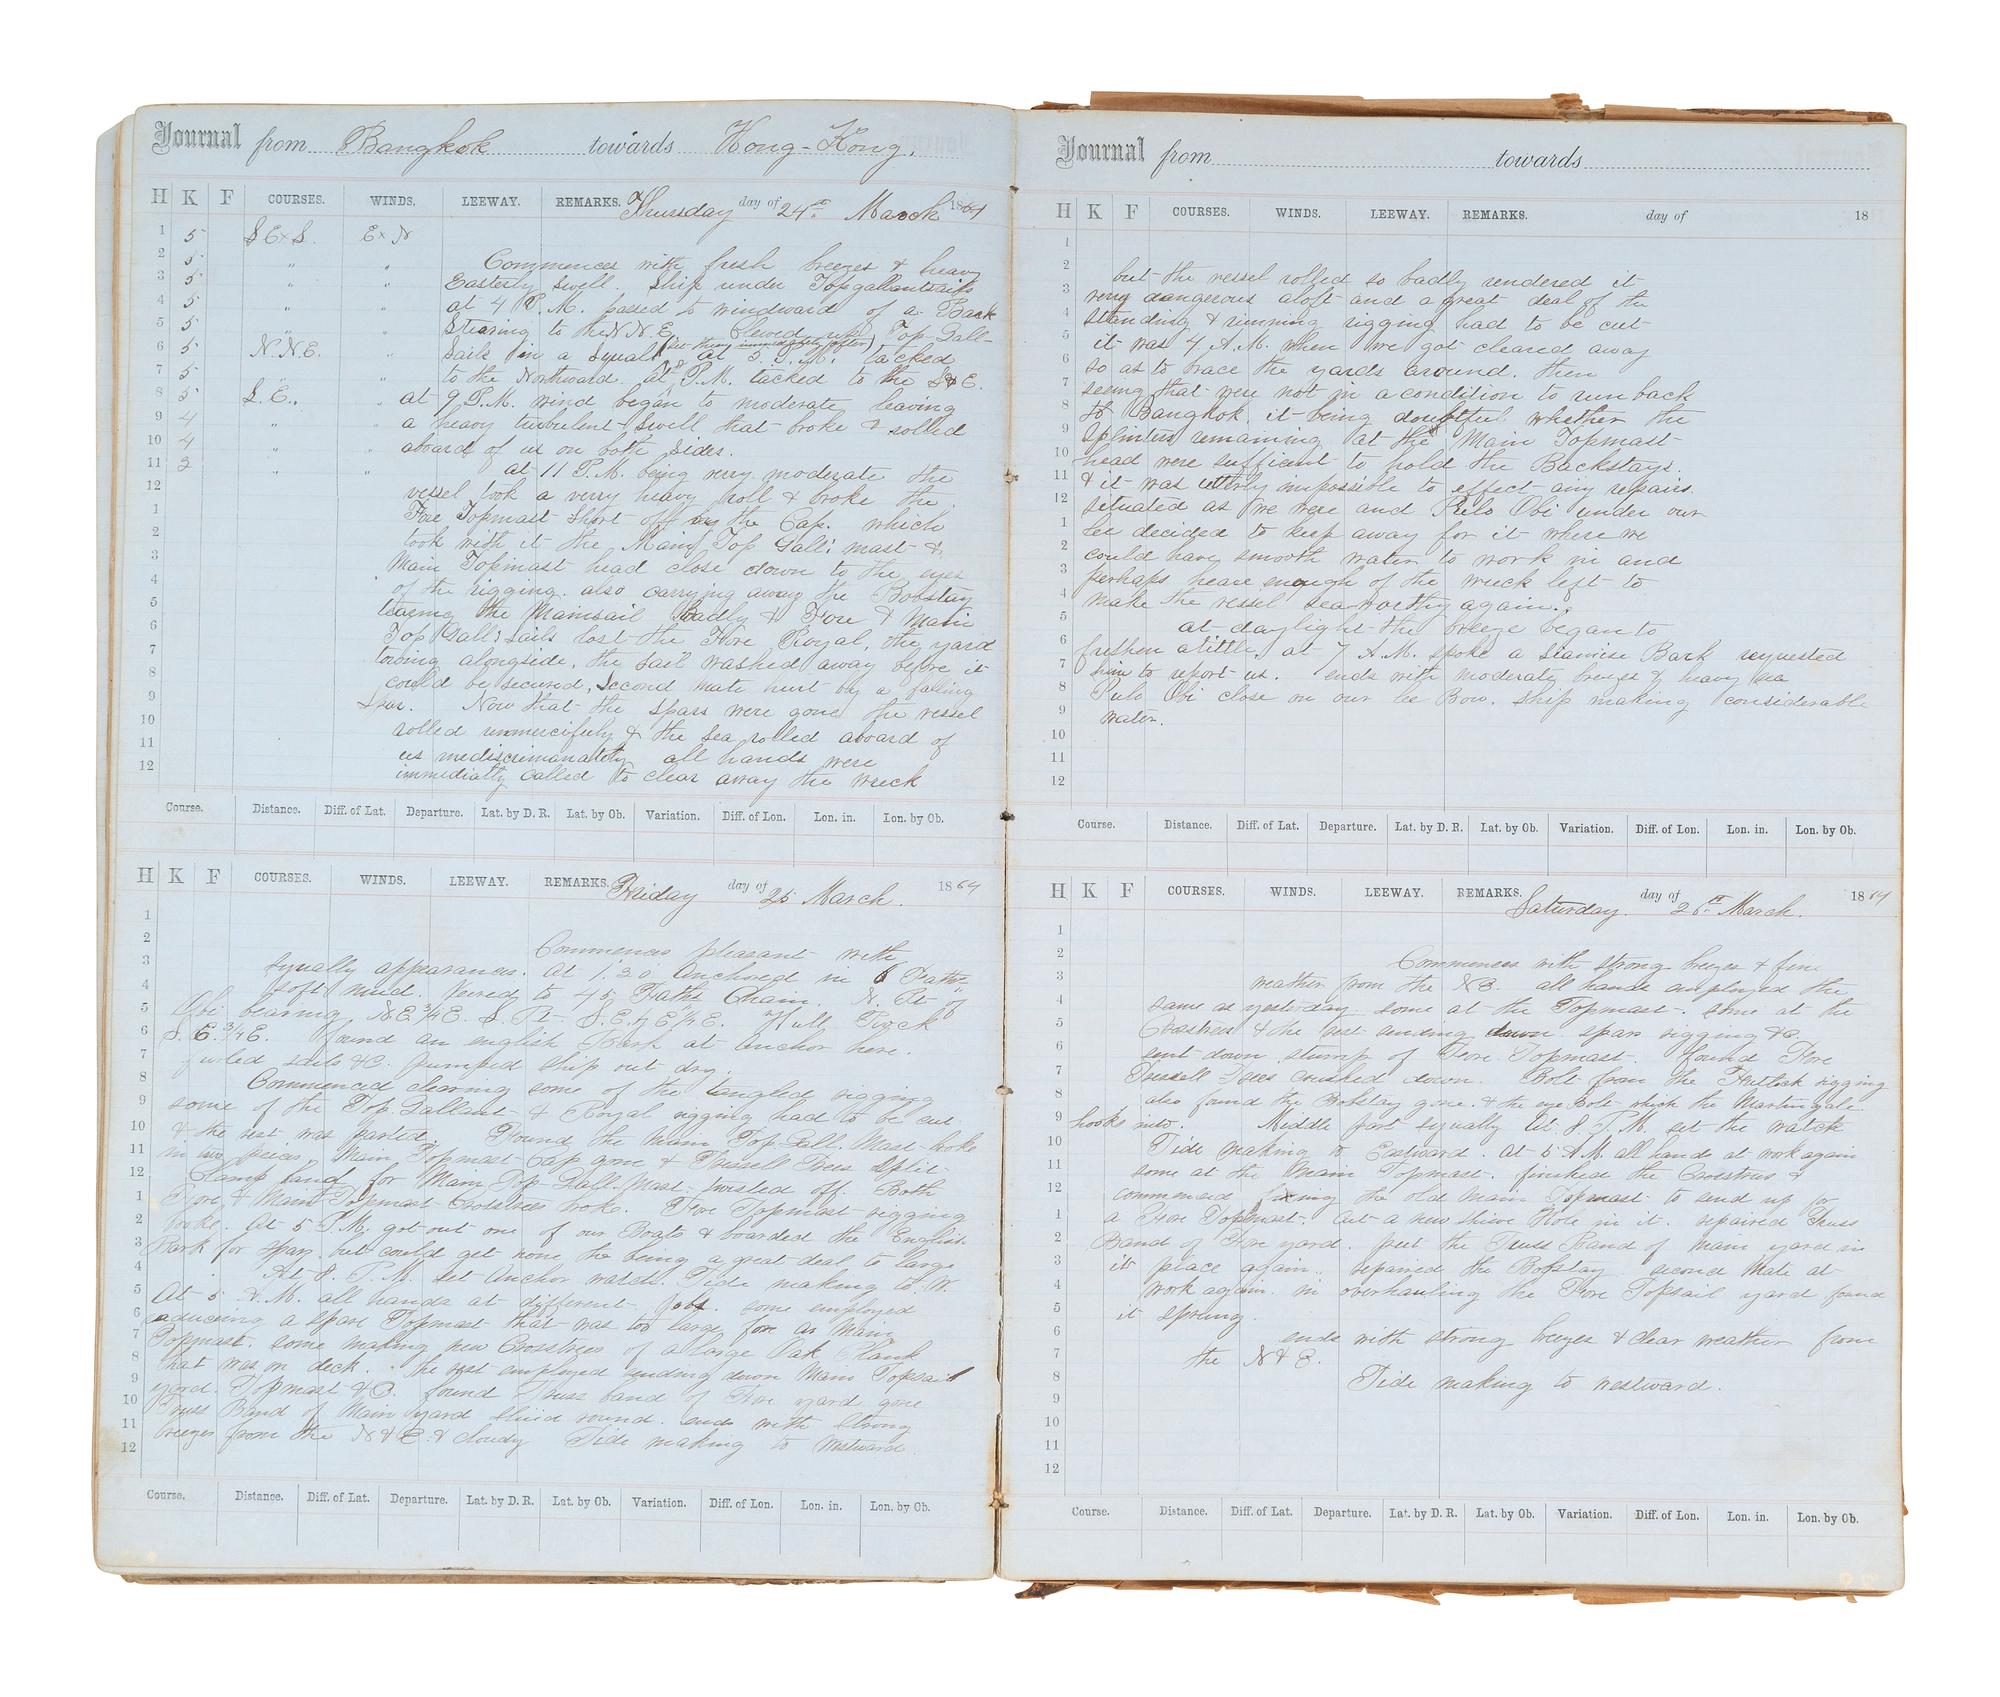 Journal from Bangkok towards Hong-Kong.
H K F COURSES. WINDS. LEEWAY. REMARKS. Thursday day of 24th March 1864
1 5 S E x S. E x N
2 5 " " Commences with fresh breezes & heavy
3 5 " " Easterly Swell. Ship under Topgallantsails
4 5 " " at 4 P.M. passed to windward of a Bark
5 5 " " Stearing to the N N E. Clewed up Top-Gall-
(set them immediately after)
6 5 N.N.E. " Sails in a squall at 5. P.M. tacked
7 5 " " to the Northward. at 8 P.M. tacked to the S & E.
8 5 S.E. " at 9 P.M. wind began to moderate leaving
9 4 " " a heavy turbulent swell that broke & rolled
10 4 " " aboard of us on both sides.
11 3 " " at 11 P.M. being very moderate the
12 vessel took a verry heavy roll & broke the
1 Fore Topmast short off by the Cap. which
2 took with it the Main Top Gall: mast &
3 Main Topmast head close down to the eyes
4 of the rigging. also carrying away the Bobstay
5 tearing the Mainsail Badly & Fore & Main
6 Top Gall: Sails lost the Fore Royal, the yard
7 towing alongside, the sail washed away before it
8 could be secured, Second Mate hurt by a falling
9 Spar. Now that the spars were gone the vessel
10 rolled unmercifully & the sea rolled aboard of
11 us indiscrimanately all hands were
12 immediatly called to clear away the wreck
Course. Distance. Diff. of Lat. Departure. Lat. by D. R. Lat. by Ob. Variation. Diff. of Lon. Lon. in. Lon. by Ob.
H K F COURSES. WINDS. LEEWAY. REMARKS. Friday day of 25 March. 1864
1
2 Commences pleasant with
3 squally appearances. At 1.30 Anchored in 6 Faths
4 soft mud. Veered to 45 Faths Chain. N. Pt of
5 Obi bearing N.E ¾ E. S. Pt S.E. ¼ E.
6 S. E. ¾ E. found an english Bark at Anchor here.
7 furled sails &C. pumped ship out dry.
8 Commenced clearing some of the tangled rigging
9 some of the Top Gallant & Royal rigging had to be cut
10 & the rest was parted. Found the Main Top Gall. Mast broke
11 in two pieces. Main Topmast Cap gone & Tressell Trees split
12 Clamp band for Main Top Gall Mast twisted off. Both
1 Fore & Main Topmast Crosstrees broke. Fore Topmast rigging
2 broke. At 5 P.M. got out one of our Boats & boarded the English
3 Bark for spars. but could get none he being a great deal to large
4 At 8. P.M. set Anchor watch. Tide making to W.
5 At 5 A.M. all hands at different Jobs. some employed
6 reducing a spare Topmast that was too large for a Main
7 Topmast. some making new Crosstrees of a large Oak Plank
8 that was on deck. the rest employed sending down Main Topsail
9 yard. Topmast &C. found Truss band of Fore yard gone
10 Truss Band of Main yard slued round. ends with strong
11 breezes from the N & E. & cloudy Tide making to Westward.
12
Course. Distance. Diff. of Lat. Departure. Lat. by D. R. Lat. by Ob. Variation. Diff. of Lon. Lon. in. Lon. by Ob.
Journal from towards
H K F COURSES. WINDS. LEEWAY. REMARKS. day of 18
1
2 but the vessel rolled so badly rendered it
3 very dangerous aloft and a great deal of the
4 standing & running rigging had to be cut
5 it was 7 A.M. when we got cleared away
6 so as to brace the yards around. then
7 seeing that were not in a condition to run back
8 to Bangkok. it being doubtful whether the
9 Splinters remaining at the Main Topmast
10 head were sufficient to hold the Backstays.
11 & it was utterly impossible to effect any repairs.
12 situated as we were and Pulo Obi under our
1 lee decided to keep away for it where we
2 could have smooth water to work in and
3 perhaps heave enough of the wreck left to
4 make the vessel sea-worthy again.
5 at daylight the breeze began to
6 freshen a little, at 7 A.M. spoke a Siamese Bark requested
7 him to report us. ends with moderate breezes & heavy sea
8 Pulo Obi close on our lee Bow. ship making considerable
9 water.
10
11
12
Course. Distance. Diff. of Lat. Departure. Lat. by D. R. Lat. by Ob. Variation. Diff. of Lon. Lon. in. Lon. by Ob.
H K F COURSES. WINDS. LEEWAY. REMARKS. Saturday. day of 26th March. 1864
1
2 Commences with strong breezes & fine
3 weather from the N.E. all hands employed the
4 same as yesterday some at the Topmast. some at the
5 Crosstrees & the rest sending down spars rigging &C.
6 sent down stump of Fore Topmast. found Fore
7 Tressell Trees crushed down. Bolt from the Futtock rigging
8 also found the Bobstay gone. & the eye Bolt which the Martingale
9 hooks into. Middle part squally At 8 P.M. set the watch
10 Tide making to Eastward. At 5 A.M. all hands at work again
11 some at the Main Topmast. finished the Crosstrees &
12 commenced fixing the old Main Topmast to send up for
1 a Fore Topmast. Cut a new shive Hole in it. repaired Truss
2 Band of Fore yard. put the Truss Band of Main yard in
3 it place again. repaired the Bobstay second Mate at
4 work again. in overhauling the Fore Topsail yard found
5 it sprung.
6 ends with strong breezes & clear weather from
7 the N & E.
8 Tide making to westward.
9
10
11
12
Course. Distance. Diff. of Lat. Departure. Lat. by D. R. Lat. by Ob. Variation. Diff. of Lon. Lon. in. Lon. by Ob.